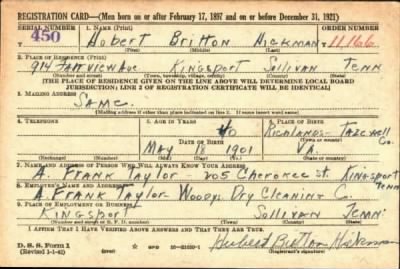 REGISTRATION CARD—(Men born on or after February 17, 1897 and on or before December 31, 1921)
SERIAL NUMBER 1. NAME (Print) ORDER NUMBER
450 Hobert Britton Hickman 11,166
(First) (Middle) (Last)
2. PLACE OF RESIDENCE (Print)
914 Fairview Ave Kingsport Sullivan Tenn
(Number and street) (Town, township, village, or city) (County) (State)
[THE PLACE OF RESIDENCE GIVEN ON THE LINE ABOVE WILL DETERMINE LOCAL BOARD
JURISDICTION; LINE 2 OF REGISTRATION CERTIFICATE WILL BE IDENTICAL]
3. MAILING ADDRESS
Same
[Mailing address if other than place indicated on line 2. If same insert word same]
4. TELEPHONE 5. AGE IN YEARS 6. PLACE OF BIRTH
40 Richlands - Tazewell Co.
DATE OF BIRTH (Town or county)
May 18 1901 VA.
(Exchange) (Number) (Mo.) (Day) (Yr.) (State or country)
7. NAME AND ADDRESS OF PERSON WHO WILL ALWAYS KNOW YOUR ADDRESS
A. Frank Taylor 205 Cherokee St. Kingsport Tenn
8. EMPLOYER'S NAME AND ADDRESS
A Frank Taylor - Woods Dry Cleaning Co.
9. PLACE OF EMPLOYMENT OR BUSINESS
Kingsport Sullivan Tenn.
(Number and street or R. F. D. number) (Town) (County) (State)
I AFFIRM THAT I HAVE VERIFIED ABOVE ANSWERS AND THAT THEY ARE TRUE.
D. S. S. Form 1
(Revised 1-1-42) GPO 16—21630-1 Hobert Britton Hickman
(Registrant's signature)